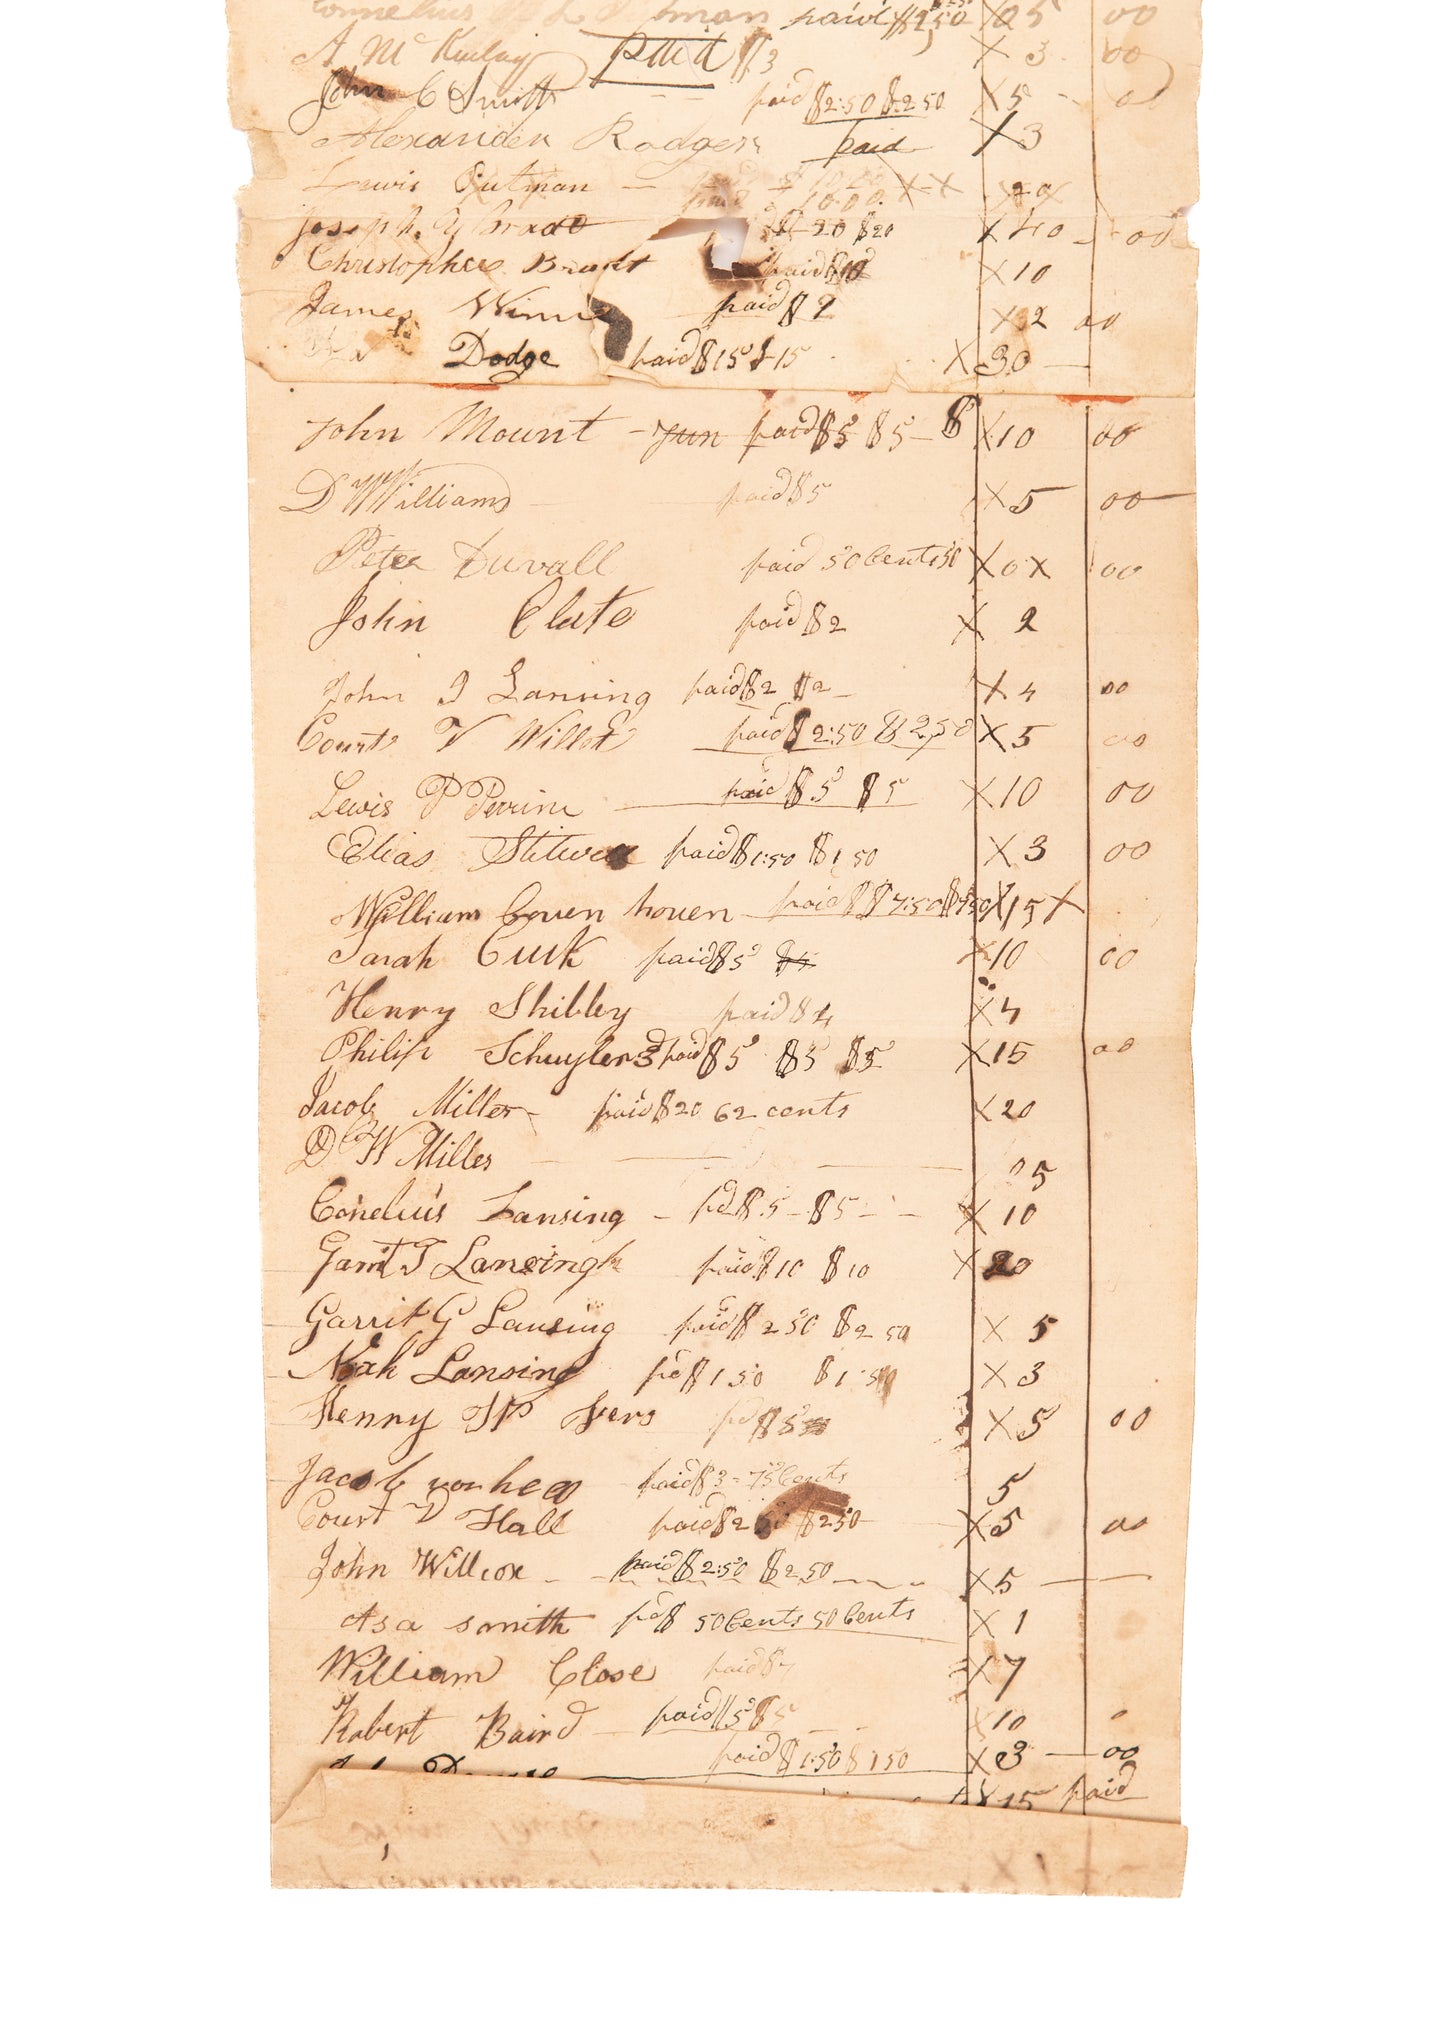 Cornelius paid $2,50 X 5 00
A Mc Kinlay paid $3 X 3 00
John C Smith paid $2:50 $2 50 X 5 - 00
Alexander Rodgers paid X 3
Lewis Putman — 10.00 X X 20
Joseph $20 $20 X 40 - 00
Christopher Bradt paid $10 X 10
James Winne paid $2 X 2 00
Dodge paid $15 $15 X 30 —
John Mount - Jun paid $5 $5 - $ X 10 00
D W Williams paid $5 X 5 00
Peter Duvall paid 50 Cents 50 X 0 X 00
John Clute paid $2 X 2
John I Lansing paid $2 $2 - X 4 00
Court V Willet paid $2:50 $2,50 X 5 00
Lewis P Perrine — paid $5 $5 X 10 00
Elias Stilwell paid $1:50 $1 50 X 3 00
William Coven hoven paid $7:50 $7 50 X 15 X
Sarah Cuck paid $5 $5 X 10 00
Henry Shibley paid $4 X 4
Philip Schuyler 3d paid $5 $5 $5 X 15 00
Jacob Miller - paid $20 62 cents X 20
D W Miller — 5
Conelius Lansing - pd $5 - $5 - - X 10
Garrit T Lansingh paid $10 $10 X 20
Garrit G Lansing paid $2 50 $2 50 X 5
Noah Lansing pd $1 50 $1 50 X 3
Henny pd $5 X 5 00
Jacob paid $3 = 75 Cents 5
Court V Hall paid $2 50 $2 50 X 5 00
John Willcox - paid $2:50 $2 50 X 5 —
Asa smith pd $ 50 Cents 50 Cents X 1
William Close paid $7 X 7
Robert Baird — paid $5 $5 - - X 10
paid $1:50 $1 50 X 3 — 00
X 15 paid